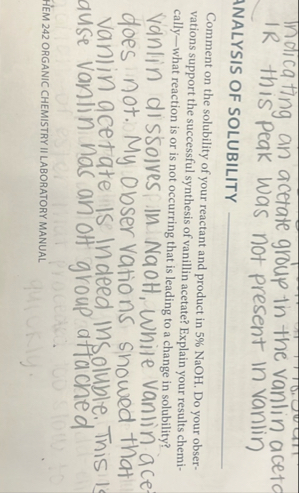 indicating an acetate group in the vanlin aceta
IR this peak was not present in vanlin
ANALYSIS OF SOLUBILITY
Comment on the solubility of your reactant and product in 5% NaOH. Do your obser-
vations support the successful synthesis of vanillin acetate? Explain your results chemi-
cally—what reaction is or is not occurring that is leading to a change in solubility?
vanlin dissolves in NaOH, while vanlin ace
does not. My observations showed that
vanlin acetate is indeed insoluble. This is
ause vanlin has an OH group attached
HEM 242 ORGANIC CHEMISTRY II LABORATORY MANUAL